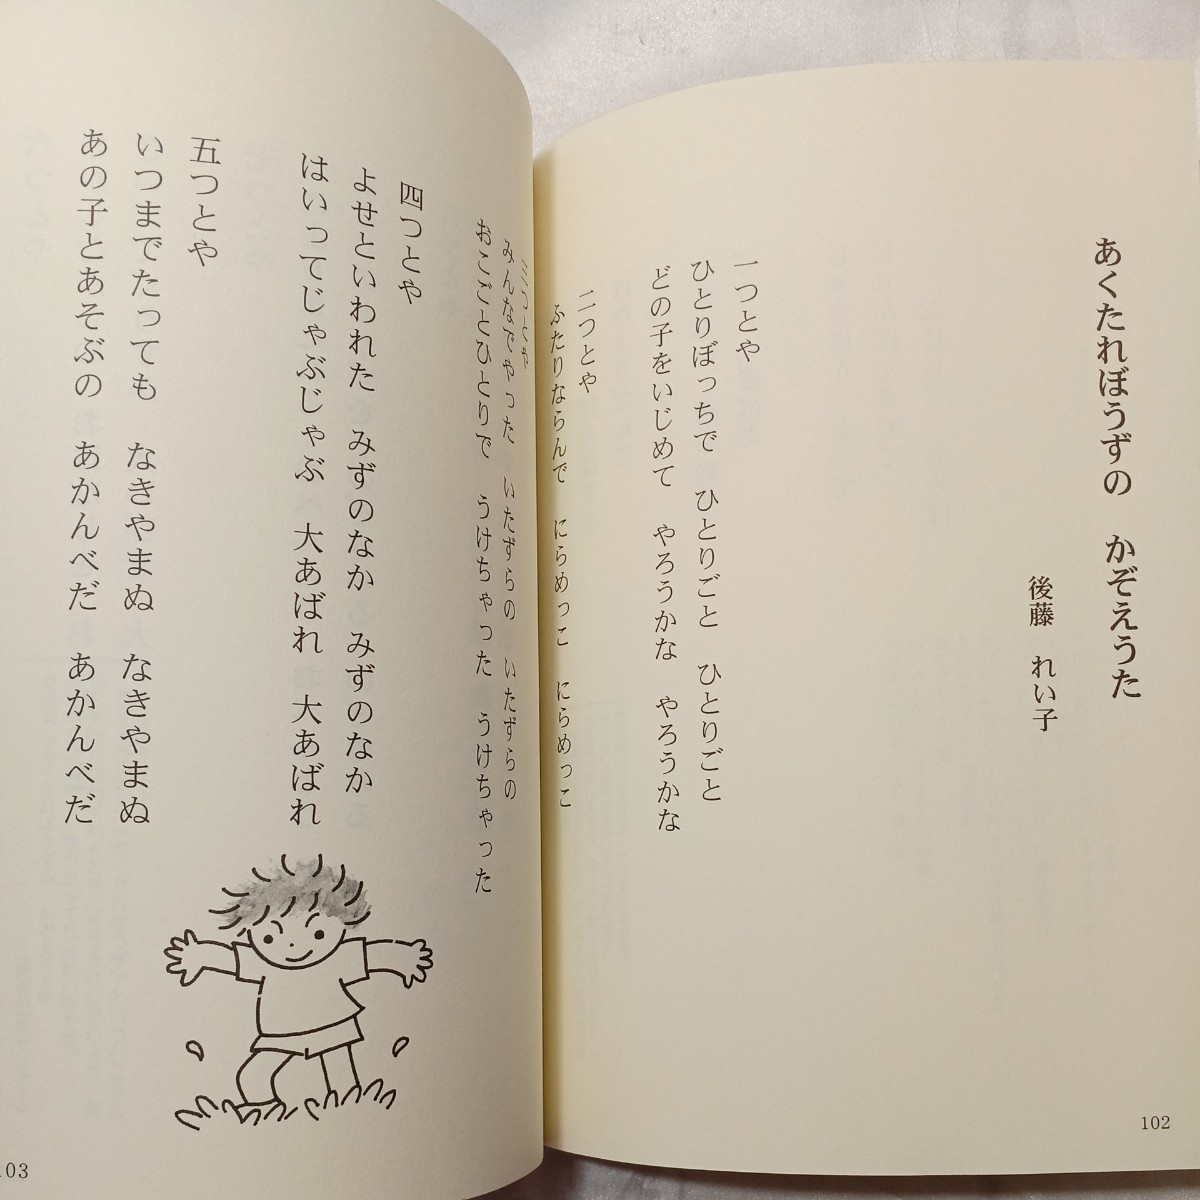 あくたれぼうずの　かぞえうた
後藤　れい子
一つとや
ひとりぼっちで　ひとりごと　ひとりごと
どの子をいじめて　やろうかな　やろうかな
二つとや
ふたりならんで　にらめっこ　にらめっこ
102
三つとや
みんなでやった　いたずらの　いたずらの
おこごとひとりで　うけちゃった　うけちゃった
四つとや
よせといわれた　みずのなか　みずのなか
はいってじゃぶじゃぶ　大あばれ　大あばれ
五つとや
いつまでたっても　なきやまぬ　なきやまぬ
あの子とあそぶの　あかんべだ　あかんべだ
103